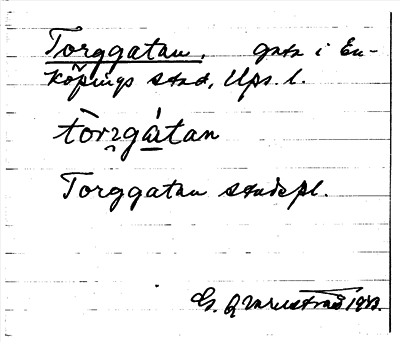 Torggatan. gata i En-
köpings stad, Ups. l.
tòrzgátan
Torggatan stadspl.
G. Qvarnström 1913.